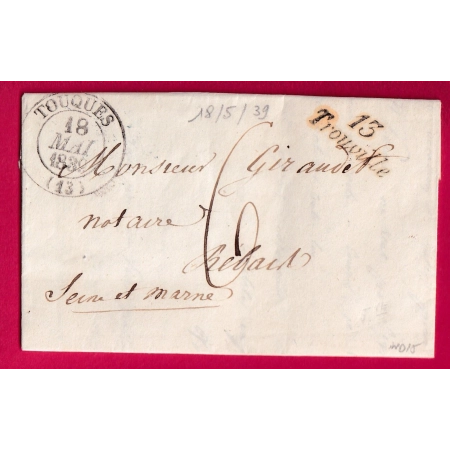 TOUQUES
18
MAI
1839
(13)
18/5/39
13
Trouville
Monsieur Giraudet
notaire
Rebais
Seine et marne
6